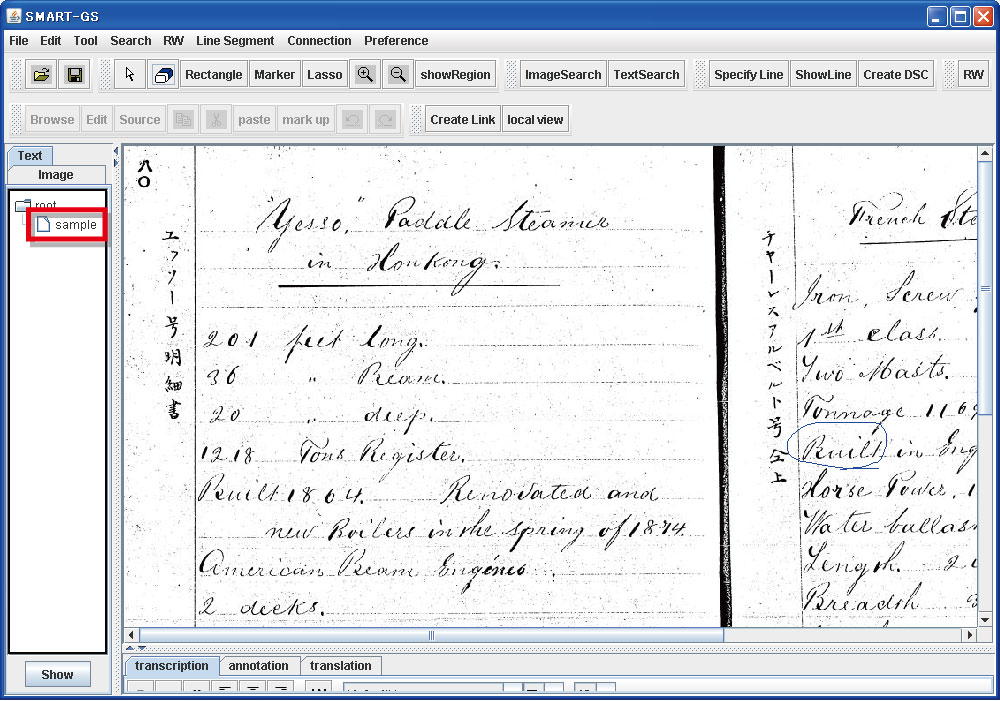 SMART-GS
File Edit Tool Search RW Line Segment Connection Preference
Rectangle Marker Lasso showRegion ImageSearch TextSearch Specify Line ShowLine Create DSC RW
Browse Edit Source paste mark up Create Link local view
Text
Image
root
sample
Show
八〇
エッソー号明細書
"Yesso," Paddle Steamer
in Honkong.
201 feet long.
36 " Beam.
20 " deep.
1218 Tons Register.
Built 1864. Renovated and
new Boilers in the spring of 1874.
American Beam Engines.
2 decks.
チャーレスアルベルト号仝上
French Ste
Iron, Screw
1st class.
Two Masts.
Tonnage 110
Built in Eng
Horse Power, 1
Water ballas
Length. 2
Breadth
transcription annotation translation